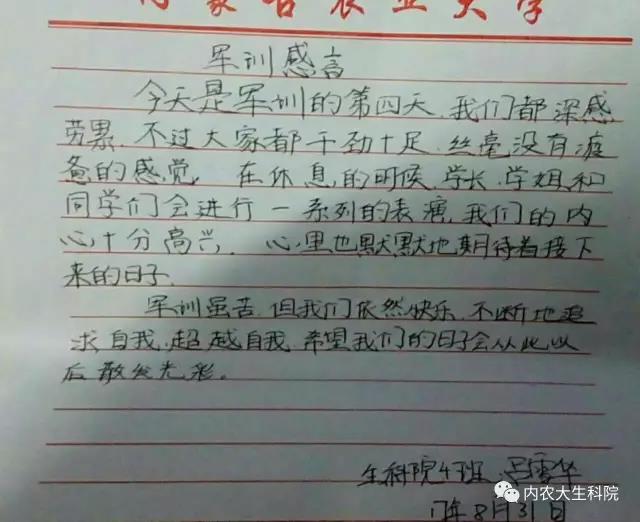 内蒙古农业大学
军训感言
今天是军训的第四天,我们都深感
劳累,不过大家都干劲十足,丝毫没有疲
惫的感觉。在休息的时候,学长、学姐和
同学们会进行一系列的表演,我们的内
心十分高兴,心里也默默地期待着接下
来的日子.
军训虽苦,但我们依然快乐,不断地追
求自我,超越自我,希望我们的日子会从此以
后散发光彩。
生科院4班 吕雪华
内农大生科院
17年8月31日